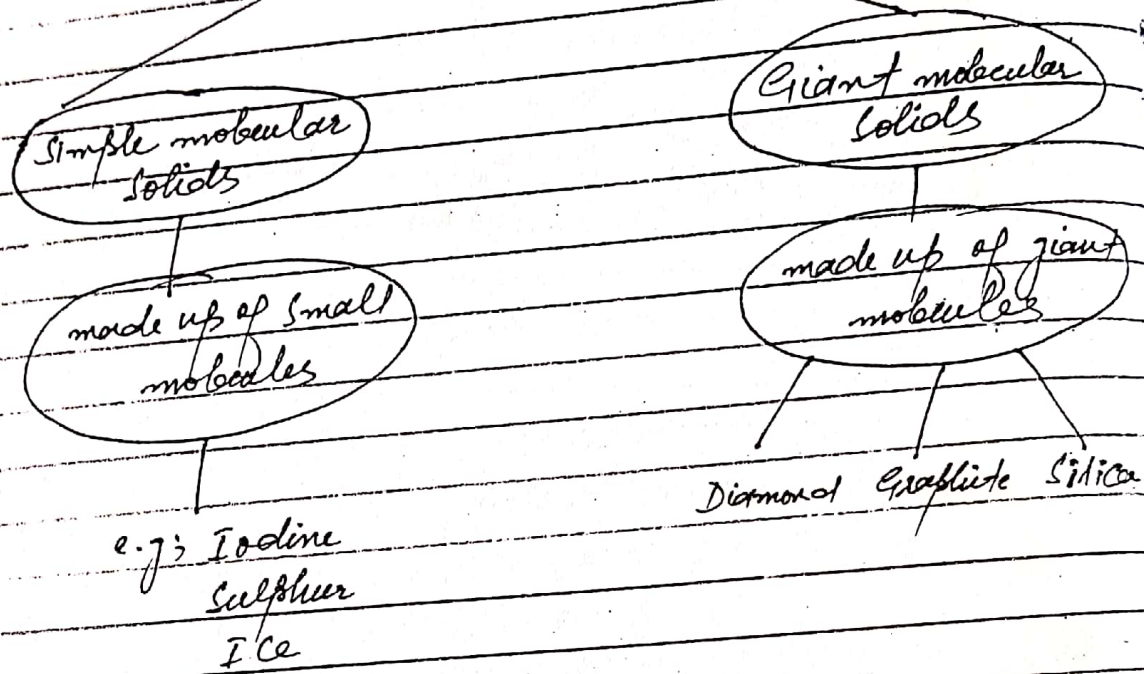 Simple molecular
Solids
made up of Small
molecules
e.g; Iodine
Sulphur
Ice
Giant molecular
Solids
made up of giant
molecules
Diamond Graphite Silica